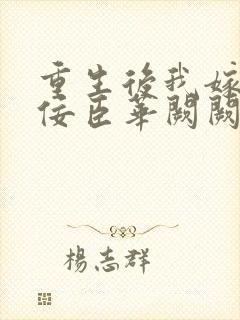 重生後我嫁
佞臣華闕闕
楊志群